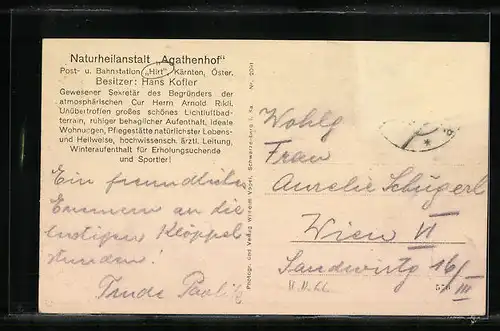 Naturheilanstalt „Agathenhof"
Post- u. Bahnstation „Hirt", Kärnten, Öster.
Besitzer: Hans Kofler
Gewesener Sekretär des Begründers der
atmosphärischen Cur Herrn Arnold Rikli.
Unübertroffen großes schönes Lichtluftbad-
terrain, ruhiger behaglicher Aufenthalt, ideale
Wohnungen, Pflegestätte natürlichster Lebens-
und Heilweise, hochwissensch. ärztl. Leitung,
Winteraufenthalt für Erholungsuchende
und Sportler!
Ein freundliches
an die
lustigen Klöppel
stunden!
Trude
Photogr. und Verlag Wilhelm
Wohlg
Frau
Aurelie Schügerl
Wien VI
16/
III